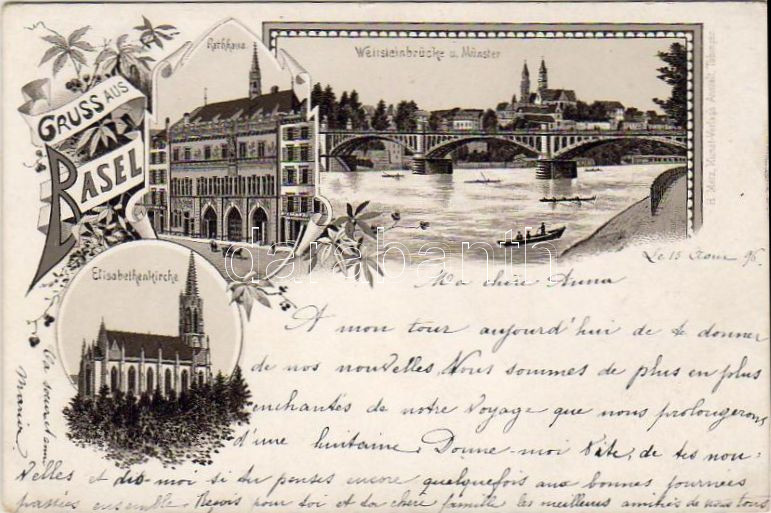 Rathhaus
Wettsteinbrücke u. Münster
GRUSS AUS
BASEL
Elisabethenkirche
H. Metz, Kunst-Verlags-Anstalt, Tübingen
darabanth
Le 15 96.
Ma chère Anna
A mon tour aujourd'hui de te donner
de nos nouvelles, Nous sommes de plus en plus
enchantés de notre voyage que nous prolongerons
d'une huitaine, Donne-moi vite, de tes nou-
velles et dis-moi si tu penses encore quelquefois aux bonnes journées
passées ensemble. Reçois pour toi et ta chère famille les meilleures amitiés de nous tous
Ta
Maria